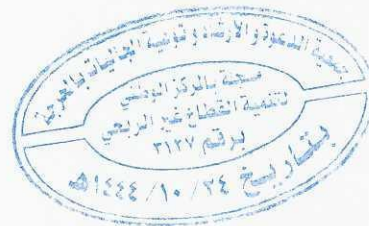 جمعية الدعوة والإرشاد وتوعية الجاليات بالحرجة
مسجلة بالمركز الوطني
لتنمية القطاع غير الربحي
برقم ٣١٢٧
بتاريخ ١٤٤٤/١٠/٢٤هـ